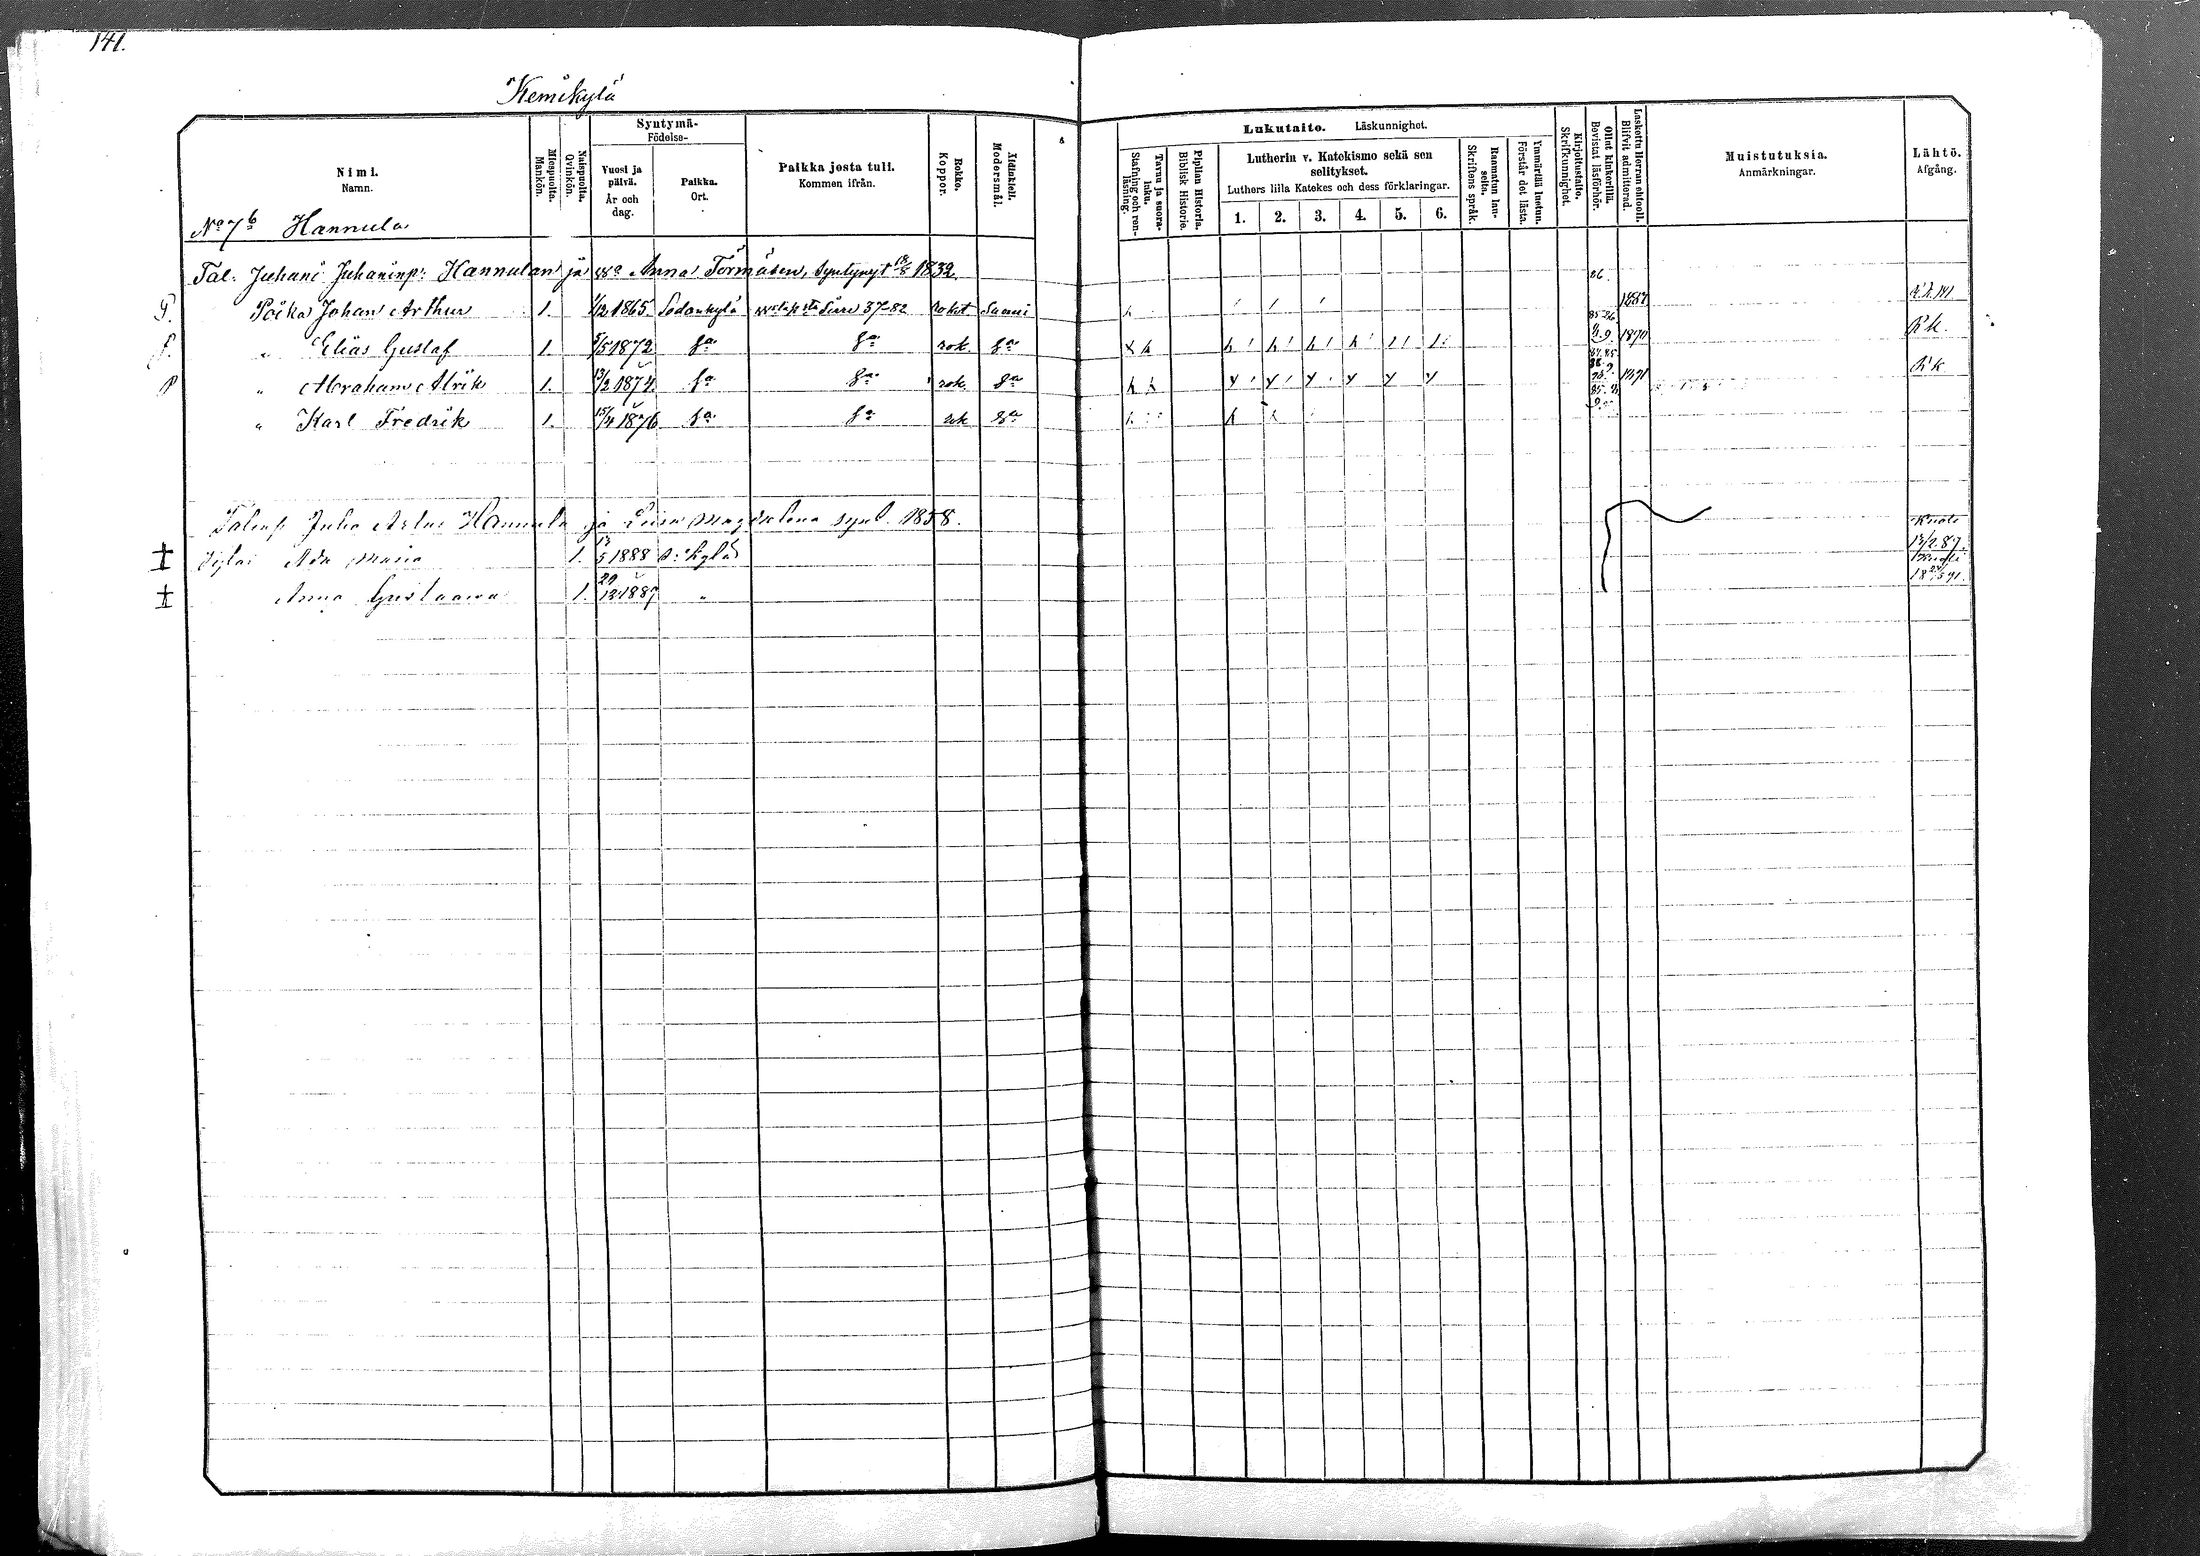 141.
Kemikylä
Nimi.
Namn.
Miespuolta.
Mankön.
Naispuolia.
Qvinkön.
Syntymä-
Födelse-
Vuosi ja päivä.
År och dag.
Paikka.
Ort.
Paikka josta tuli.
Kommen ifrån.
Rokko.
Koppor.
Äidinkieli.
Modersmål.
No 7b Hannula
Tal. Juhani Juhaninp: Hannulan ja Anna Törmäsen, syntynyt 18/8 1832
P. Poika Johan Arthur 1. 1/12 1865 Sodankylä 37-82 rokot Suomi
P. " Elias Gustaf 1. 5/5 1872 sa sa rok. sa
P " Abraham Alrik 1. 13/2 1874 sa sa rok. sa
" Karl Fredrik 1. 15/4 1876 sa sa rok sa
Juho Artur Hannula ja Liisa Magdalena synt. 1858.
Ada Maria 1. 13/5 1888 S: kylä
Anna Gustaava 1. 29/12 1887 "
Lukutaito. Läskunnighet.
Tavuu ja suora-luku.
Stafning och ren-läsning.
Piplian Historia.
Biblisk Historie.
Lutherin v. Katekismo sekä sen
selitykset.
Luthers lilla Katekes och dess förklaringar.
1. 2. 3. 4. 5. 6.
Raamatun lau-seita.
Skriftens språk.
Ymmärtää luetun.
Förstår det lästa.
Kirjoitustaito.
Skrifkunnighet.
Ollut kinkerillä.
Bevistat läsförhör.
Laskettu Herran ehtooll.
Blifvit admitterad.
Muistutuksia.
Anmärkningar.
Lähtö.
Afgång.
86.
1887
85. 86.
1890
R'k.
1891
R'k
Kuoli
13/2.89.
Kuoli
18 24/5 91.